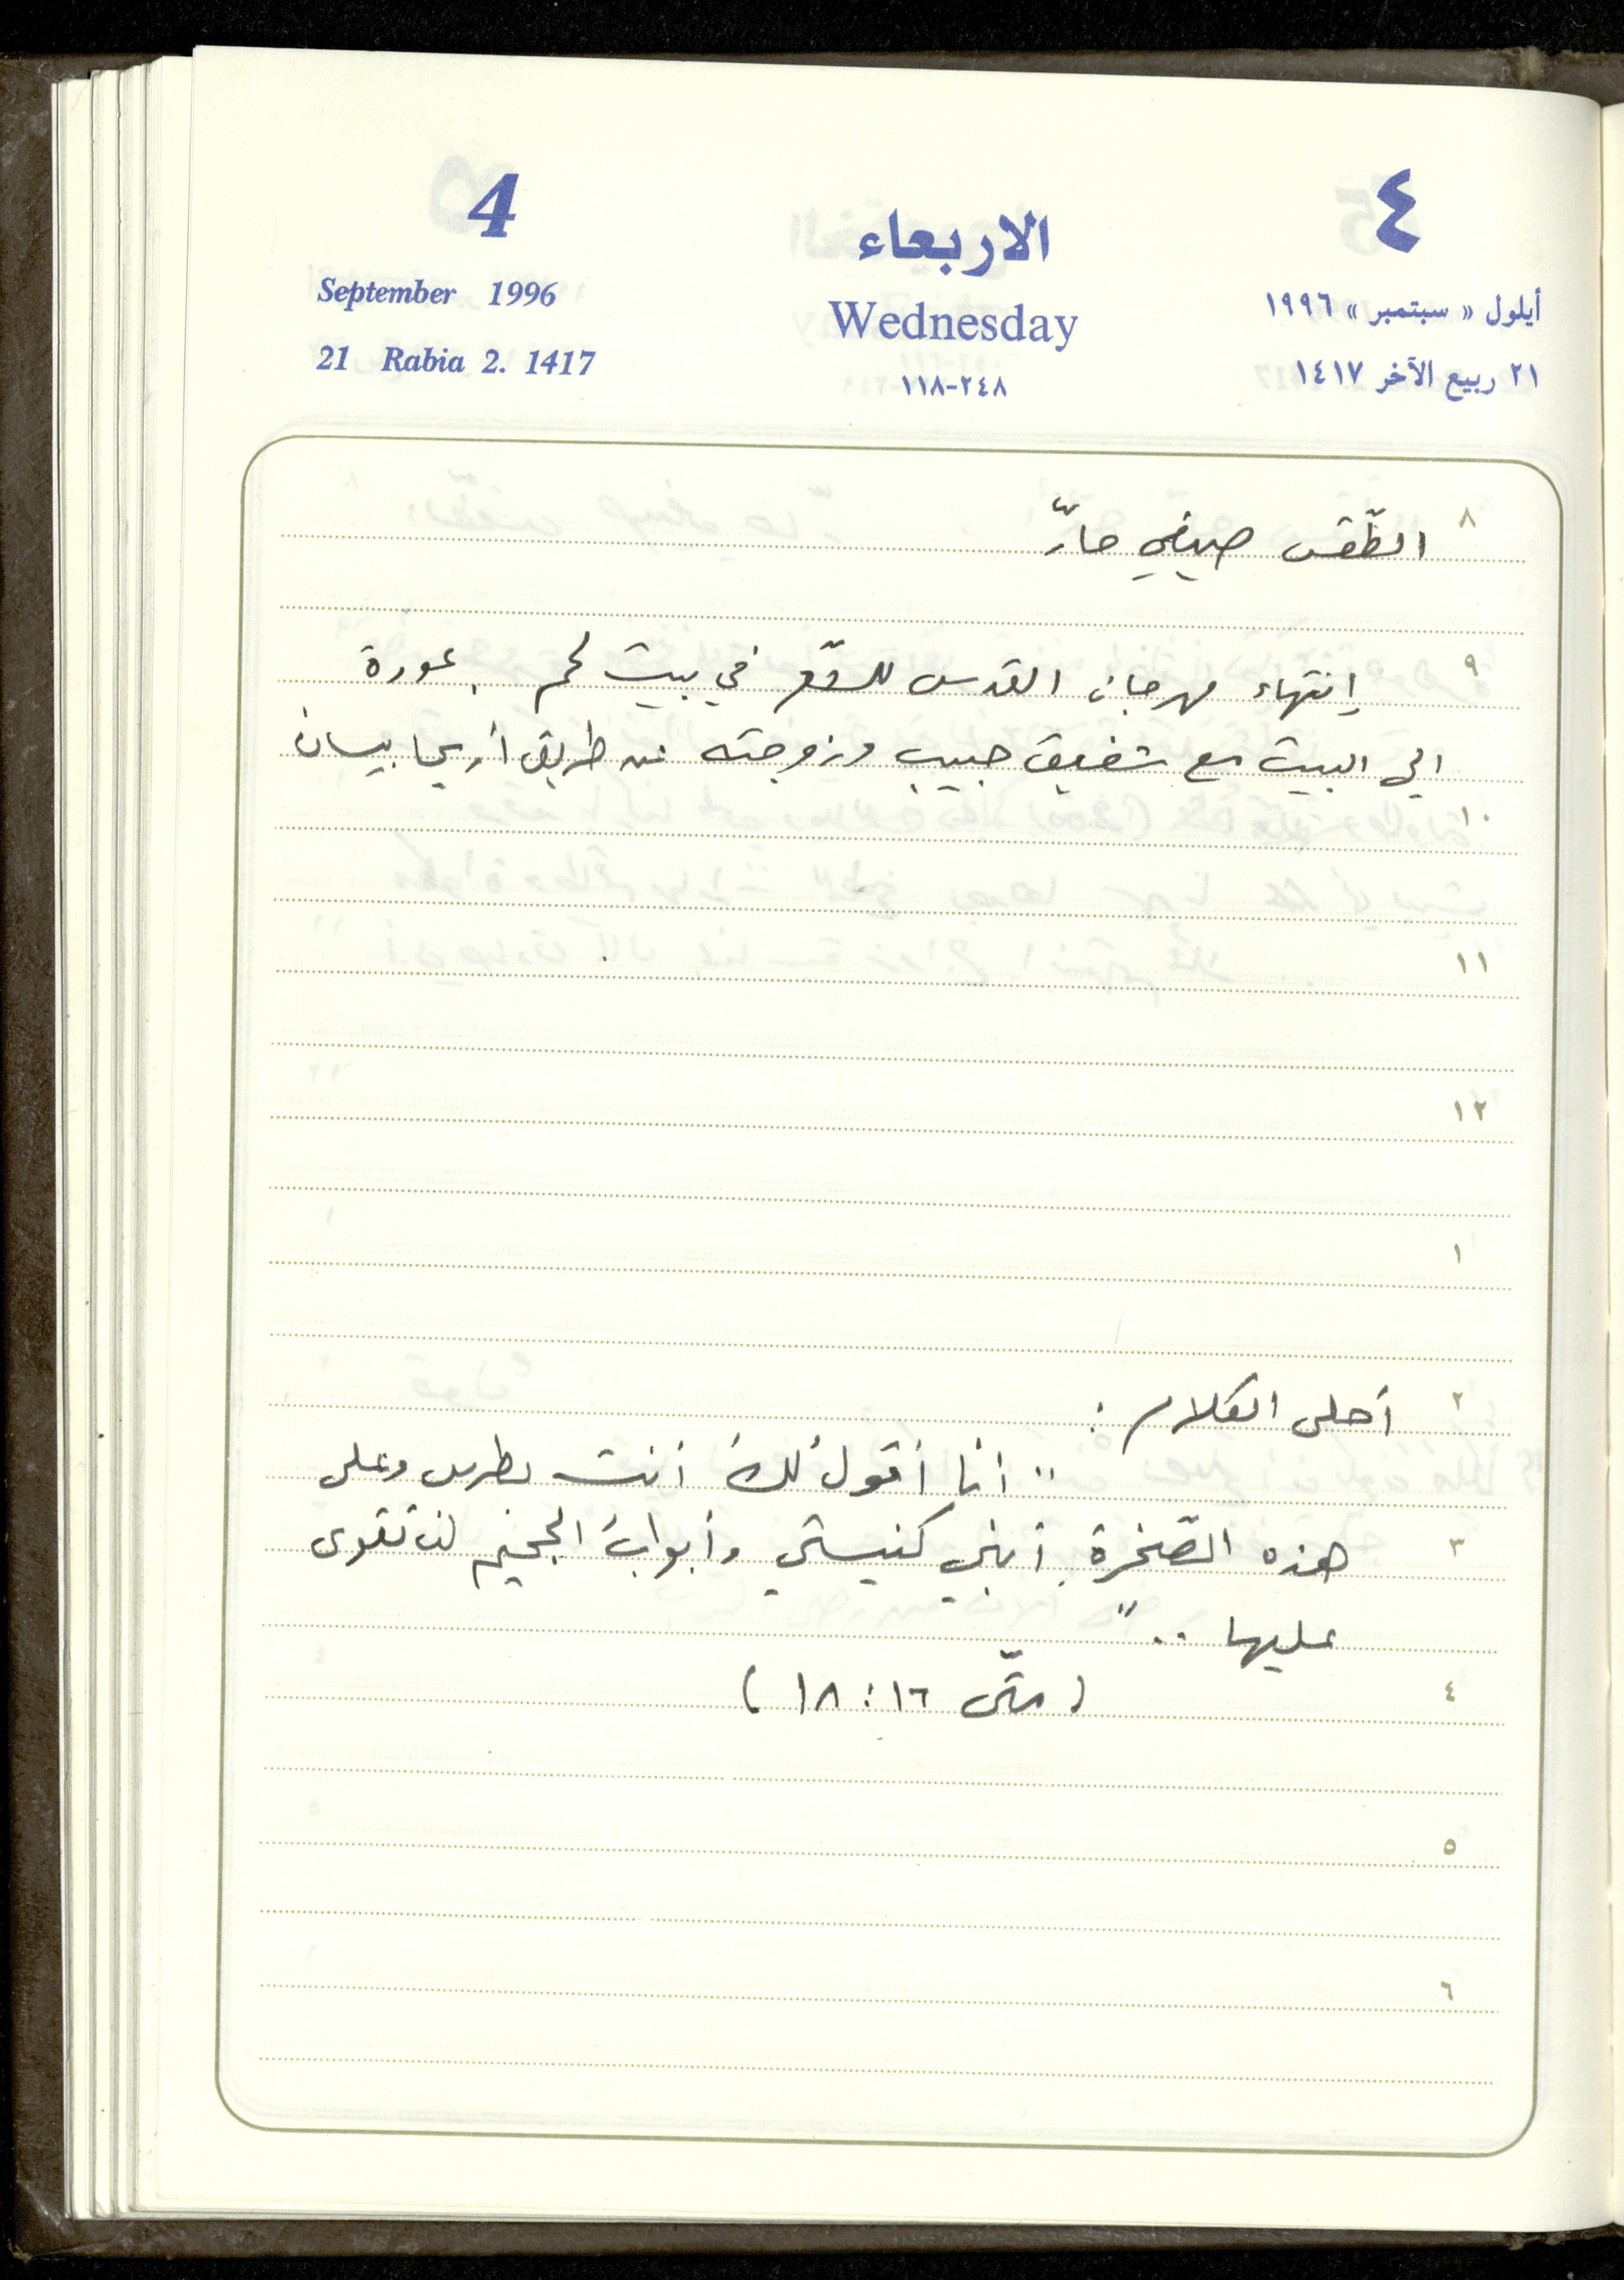 4
الاربعاء
٤
September 1996
Wednesday
أيلول « سبتمبر » ١٩٩٦
21 Rabia 2. 1417
٢٤٨-١١٨
٢١ ربيع الآخر ١٤١٧
٨
الطّقس صيفي حارّ
٩
إنتهاء مهرجان القدس للشّعر في بيت لحم . عودة
الى البيت مع شفيق حبيب وزوجته عن طريق أريحا بيسان
١٠
١١
١٢
١
٢
أحلى الكلام :
" أنا أقولُ لكَ أنت بطرس وعلى
٣
هذه الصّخرةِ أبني كنيستي وأبوابُ الجحيم لن تقوى
عليها .. "
٤
( متّى ١٦ : ١٨ )
٥
٦